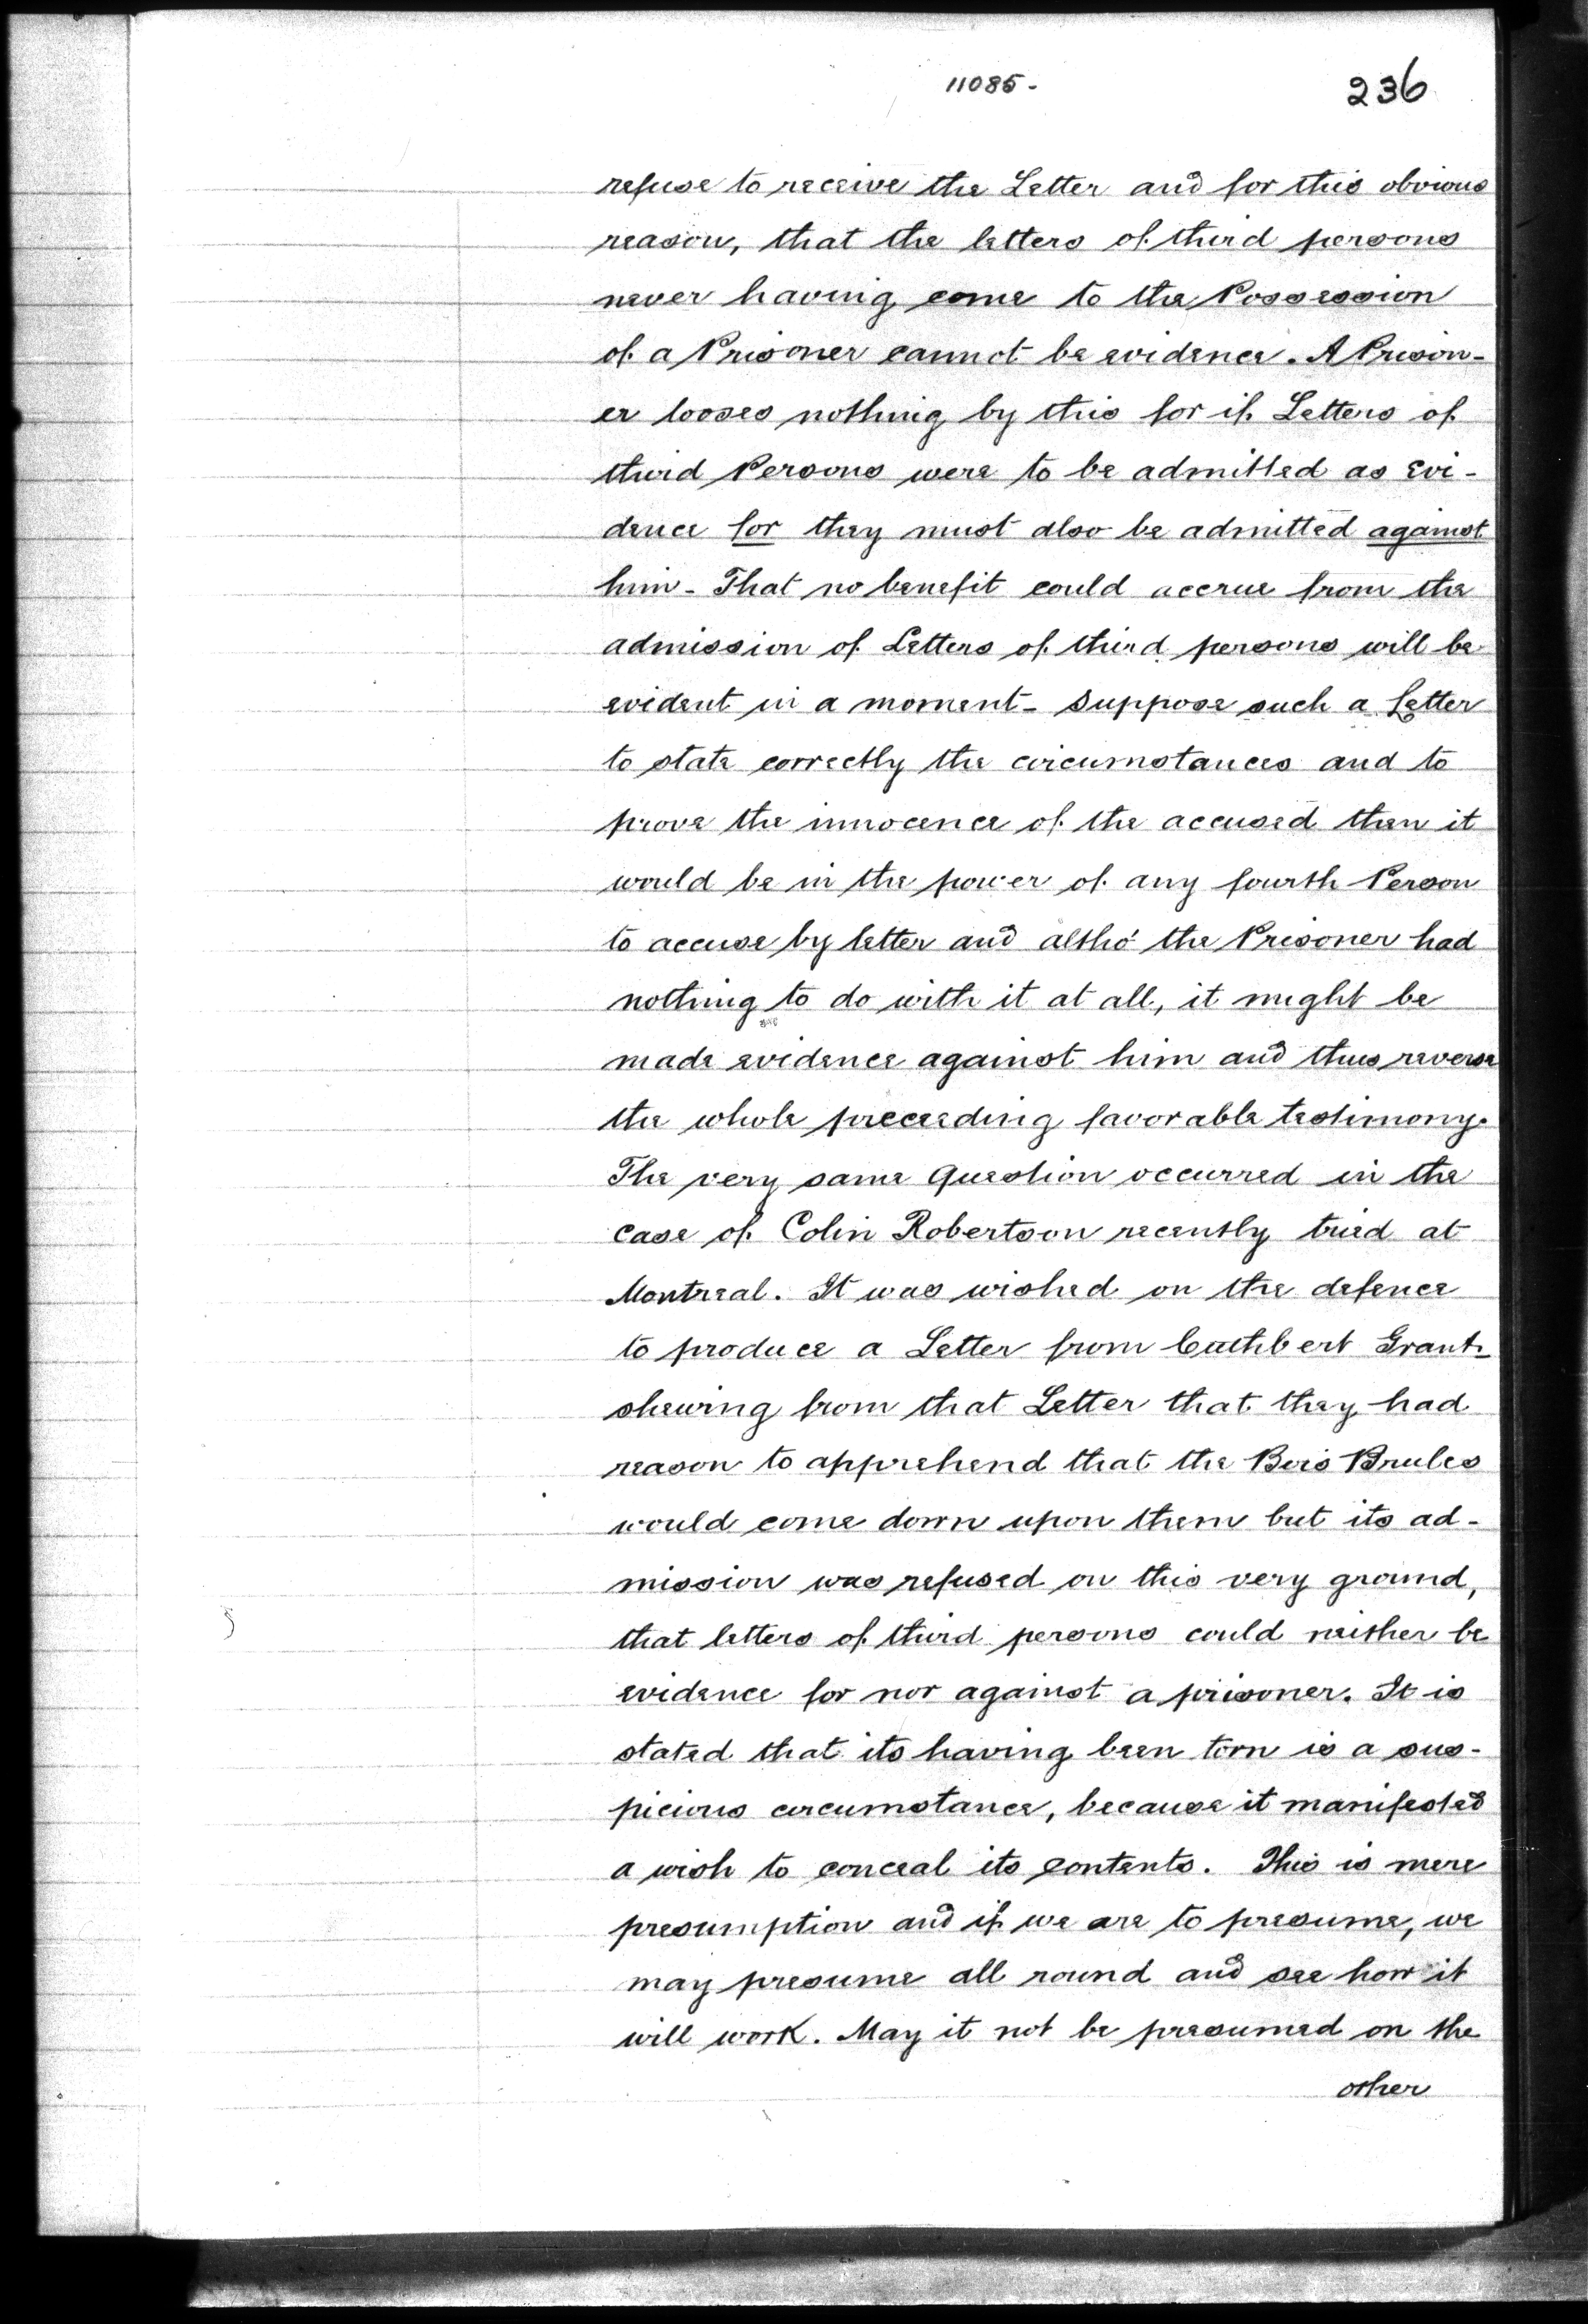 11085-
236
refuse to receive the Letter and for this obvious
reason, that the letters of third persons
never having come to the Possession
of a Prisoner cannot be evidence. A Prison-
er looses nothing by this for if Letters of
third Persons were to be admitted as Evi-
dence for they must also be admitted against
him - That no benefit could accrue from the
admission of Letters of third persons will be
evident in a moment - Suppose such a Letter
to state correctly the circumstances and to
prove the innocence of the accused then it
would be in the power of any fourth Person
to accuse by letter and altho' the Prisoner had
nothing to do with it at all, it might be
made evidence against him and thus reverse
the whole preceeding favorable testimony.
The very same Question occurred in the
case of Colin Robertson recently tried at
Montreal. It was wished on the defence
to produce a Letter from Cuthbert Grant -
shewing from that Letter that they had
reason to apprehend that the Bois Brules
would come down upon them but its ad-
mission was refused on this very ground,
that letters of third persons could neither be
evidence for nor against a prisoner. It is
stated that its having been torn is a sus-
picious circumstance, because it manifested
a wish to conceal its contents. This is mere
presumption and if we are to presume, we
may presume all round and see how it
will work. May it not be presumed on the
other